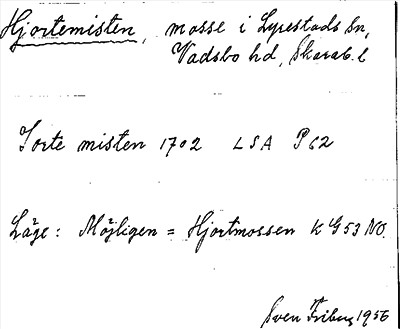 Hjortemisten, mosse i Lyrestads sn,
Vadsbo hd, Skarab. l
Jorte misten 1702 LSA P62
Läge: Möjligen = Hjortmossen K G53 NO.
Sven Friberg 1956